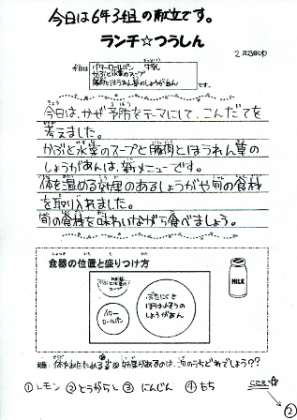 今日は6年3組の献立です。
ランチ☆つうしん
今日は
パターロールパン 牛乳
かぶと水菜のスープ
豚肉とほうれん草のしょうがあん
です。
今日は、かぜ予防をテーマにして、こんだてを
考えました。
かぶと水菜のスープと豚肉とほうれん草の
しょうがあんは、新メニューです。
体を温める効果のあるしょうがや旬の食材
を取り入れました。
旬の食材を味わいながら食べましょう。
食器の位置と盛りつけ方
ぶたにくと
ほうれんそうの
しょうがあん
MILK
①レモン ②とうがらし ③にんじん ④もち
②